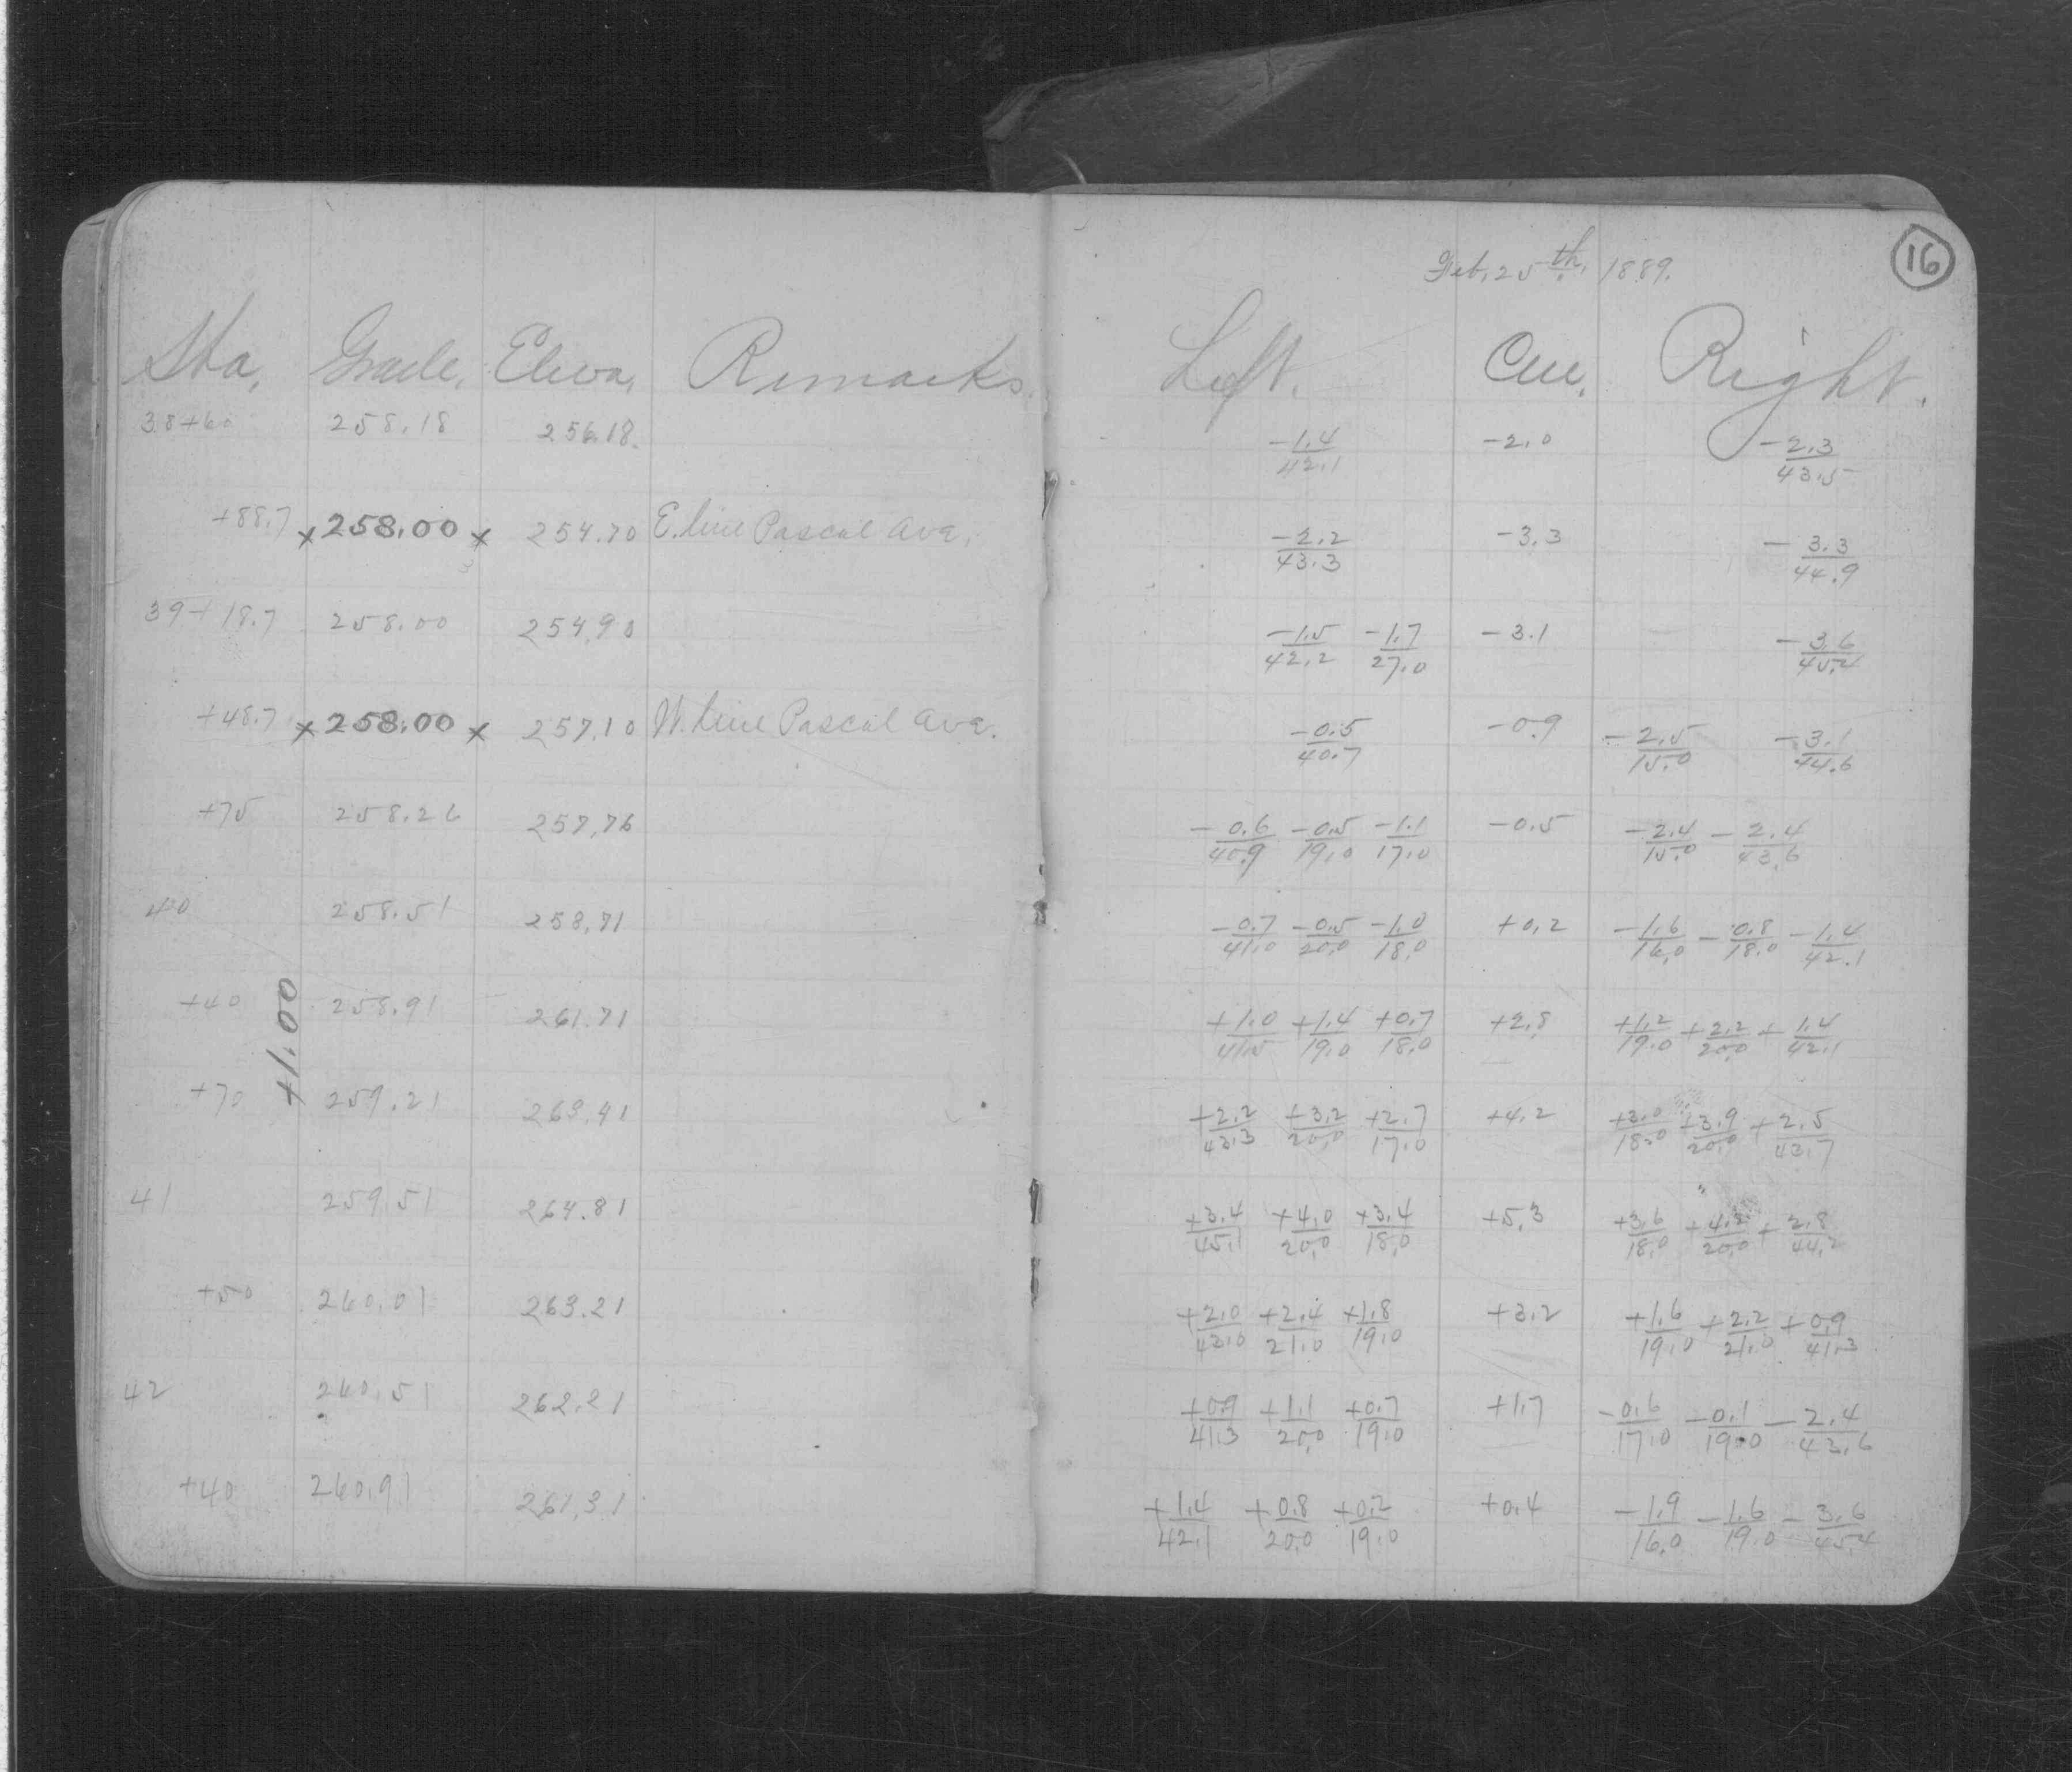 Feb. 25th. 1889.
16
Sta. Grade. Eleva. Remarks. Left. Cen. Right.
38+60 258.18 256.18. -1.4/42.1 -2.0 -2.3/43.5
+88.7 x 258.00 x 254.70 E. line Pascal Ave. -2.2/43.3 -3.3 -3.3/44.9
39+18.7 258.00 254.90 -1.5/42.2 -1.7/27.0 -3.1 -3.6/45.4
+48.7 x 258.00 x 257.10 W. line Pascal Ave. -0.5/40.7 -0.9 -2.5/15.0 -3.1/44.6
+75 258.26 257.76 -0.6/40.9 -0.5/19.0 -1.1/17.0 -0.5 -2.4/15.0 -2.4/43.6
40 258.51 258.71 -0.7/41.0 -0.5/20.0 -1.0/18.0 +0.2 -1.6/16.0 -0.8/18.0 -1.4/42.1
+1.00
+40 258.91 261.71 +1.0/41.5 +1.4/19.0 +0.7/18.0 +2.8 +1.2/19.0 +2.2/20.0 +1.4/42.1
+70 259.21 263.41 +2.2/43.3 +3.2/20.0 +2.7/17.0 +4.2 +3.0/18.0 +3.9/20.0 +2.5/43.7
41 259.51 264.81 +3.4/45.1 +4.0/20.0 +3.4/18.0 +5.3 +3.6/18.0 +4.2/20.0 +2.8/44.2
+50 260.01 263.21 +2.0/43.0 +2.4/21.0 +1.8/19.0 +3.2 +1.6/19.0 +2.2/21.0 +0.9/41.3
42 260.51 262.21 +0.9/41.3 +1.1/20.0 +0.7/19.0 +1.7 -0.6/17.0 -0.1/19.0 -2.4/43.6
+40 260.91 261.31 +1.4/42.1 +0.8/20.0 +0.2/19.0 +0.4 -1.9/16.0 -1.6/19.0 -3.6/45.4